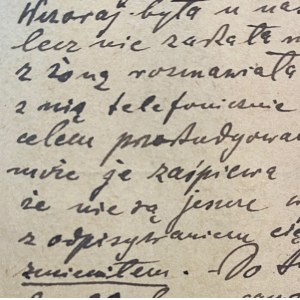 Wczoraj była u nas
lecz nie zastała m
z żoną rozmawiała
z nią telefonicznie
celem przestudyowa
może je zaśpiewa
że nie są jeszcze
z odpisywaniem cią
zmieniłem. – Do